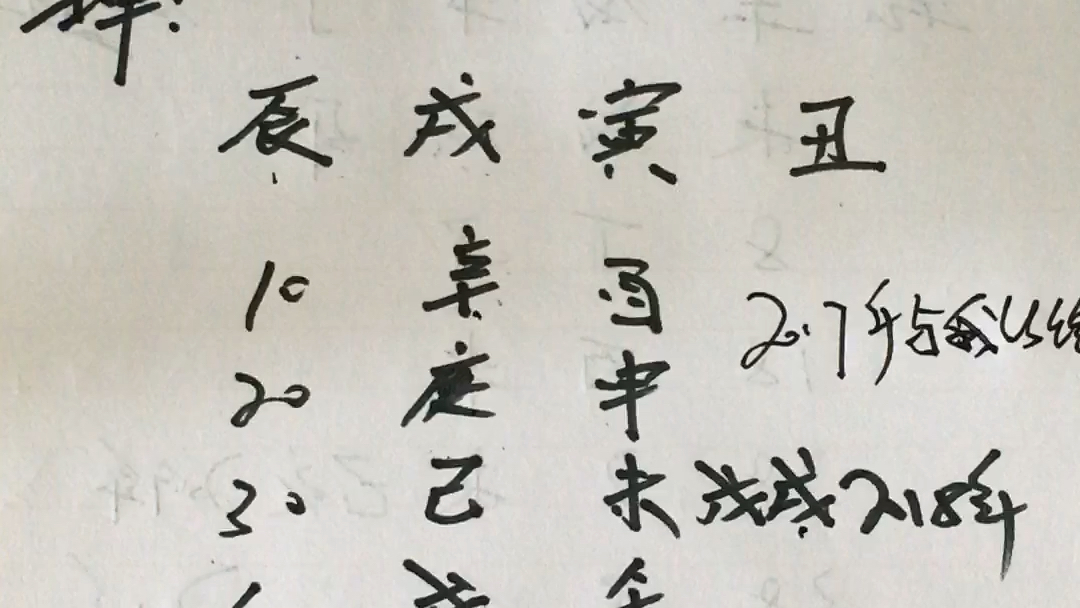 辰 戌 寅 丑
10 辛 酉
2017年与
20 庚 申
30 己 未 戊戌2018年